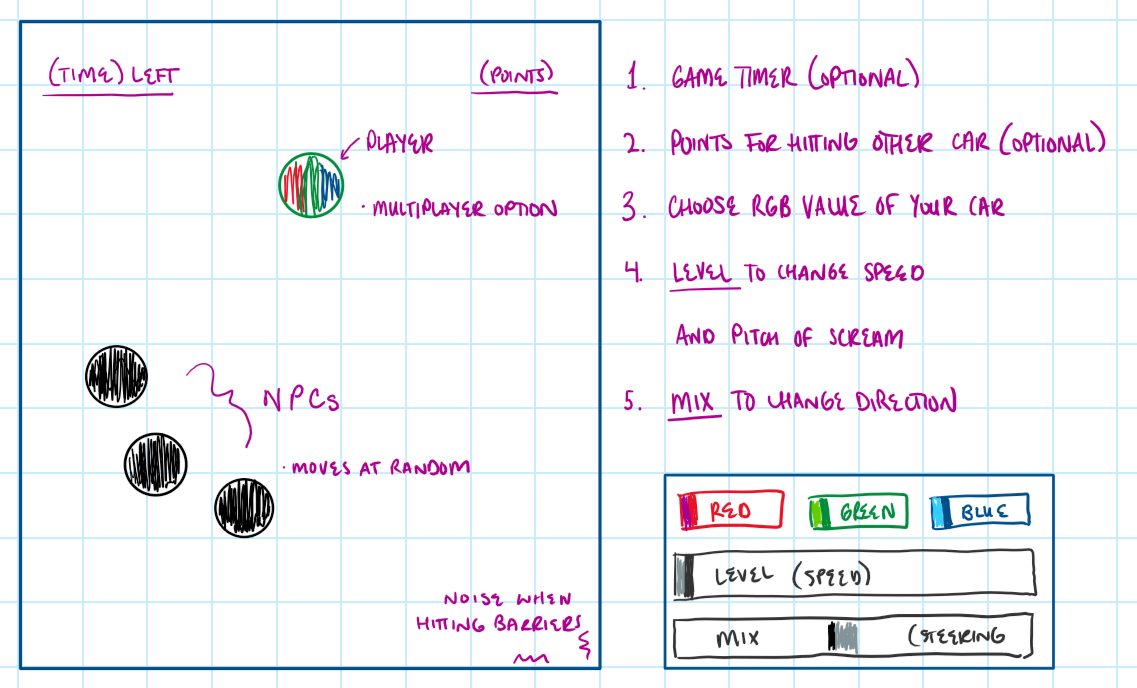 (TIME) LEFT
(POINTS)
PLAYER
• MULTIPLAYER OPTION
NPCS
• MOVES AT RANDOM
NOISE WHEN
HITTING BARRIERS
1. GAME TIMER (OPTIONAL)
2. POINTS FOR HITTING OTHER CAR (OPTIONAL)
3. CHOOSE RGB VALUE OF YOUR CAR
4. LEVEL TO CHANGE SPEED
AND PITCH OF SCREAM
5. MIX TO CHANGE DIRECTION
RED
GREEN
BLUE
LEVEL (SPEED)
MIX (STEERING